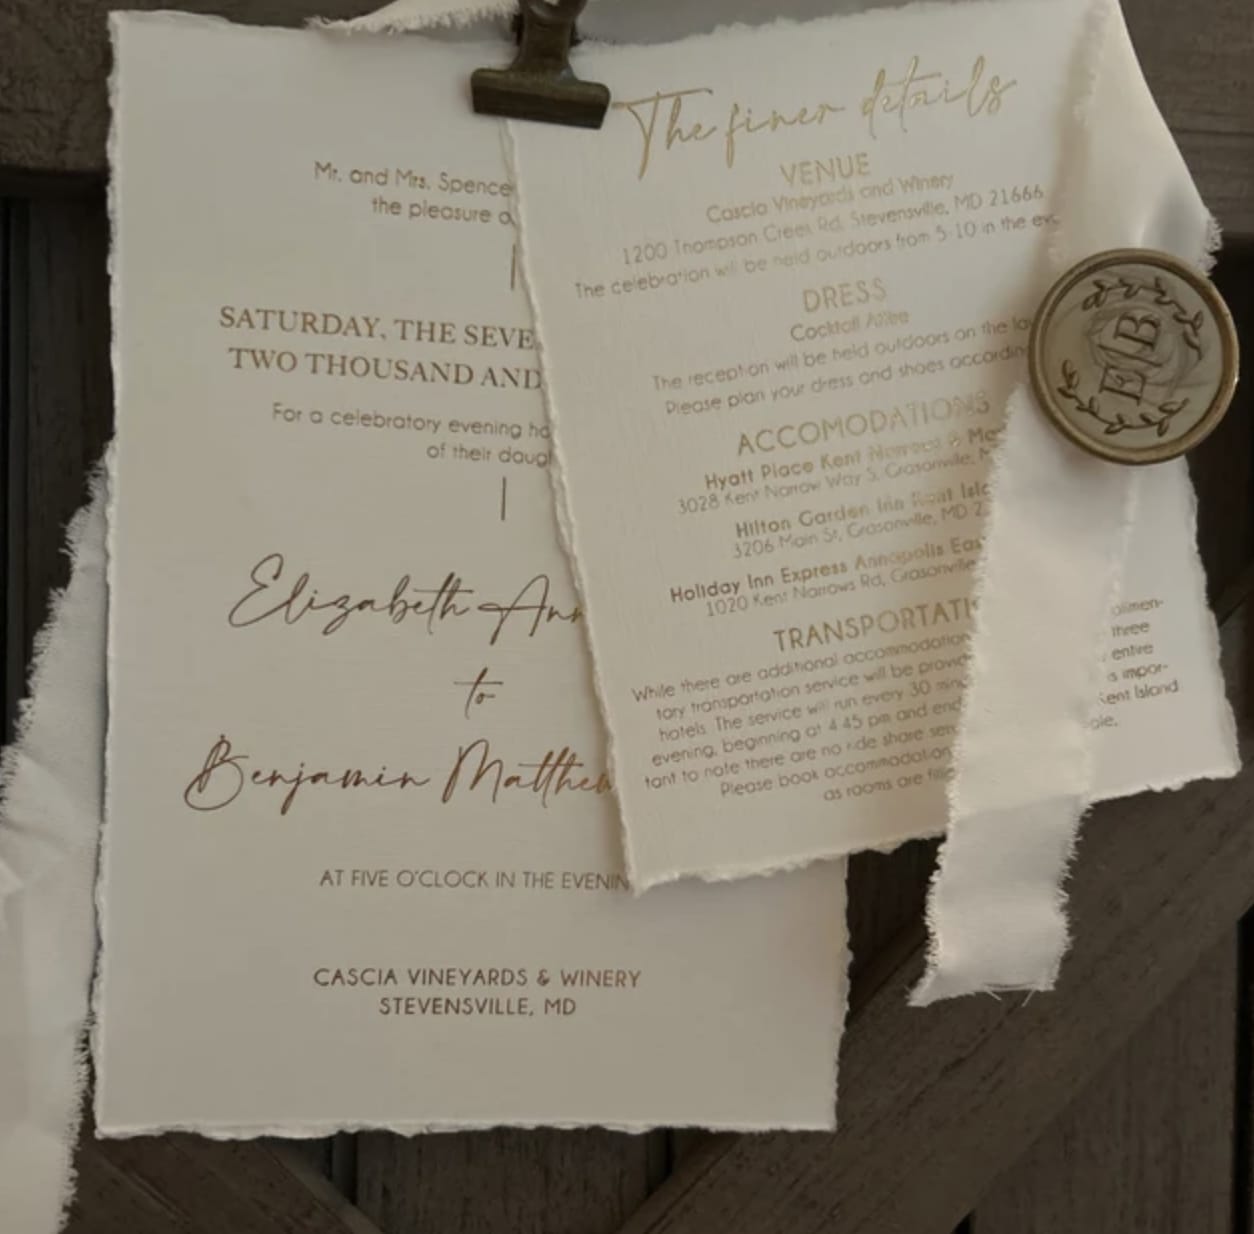 Mr. and Mrs. Spence
the pleasure o
SATURDAY, THE SEVE
TWO THOUSAND AND
For a celebratory evening ho
of their daug
Elizabeth Ann
to
Benjamin Matthew
AT FIVE O'CLOCK IN THE EVENIN
CASCIA VINEYARDS & WINERY
STEVENSVILLE, MD
The finer details
VENUE
Cascia Vineyards and Winery
1200 Thompson Creek Rd. Stevensville, MD 21666
The celebration will be held outdoors from 5-10 in the eve
DRESS
Cocktail Attire
The reception will be held outdoors on the la
Please plan your dress and shoes accordin
ACCOMODATIONS
Hyatt Place Kent Narrows & Ma
3028 Kent Narrow Way S. Grasonville, M
Hilton Garden Inn Kent Isla
3206 Main St, Grasonville, MD 2
Holiday Inn Express Annapolis Eas
1020 Kent Narrows Rd, Grasonville
TRANSPORTATI
While there are additional accommodation
olimen-
tary transportation service will be provid
three
hotels. The service will run every 30 minu
entire
evening, beginning at 4:45 pm and end
is impor-
tant to note there are no ride share serv
Kent Island
Please book accommodation
ble.
as rooms are fille
E|B